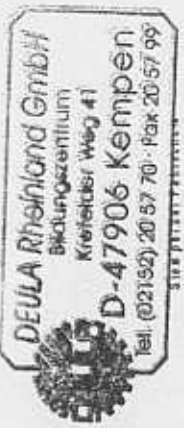 DEULA Rheinland GmbH
Bildungszentrum
Krefelder Weg 41
D-47906 Kempen
Tel. (02152) 20 57 70 · Fax 20 57 99